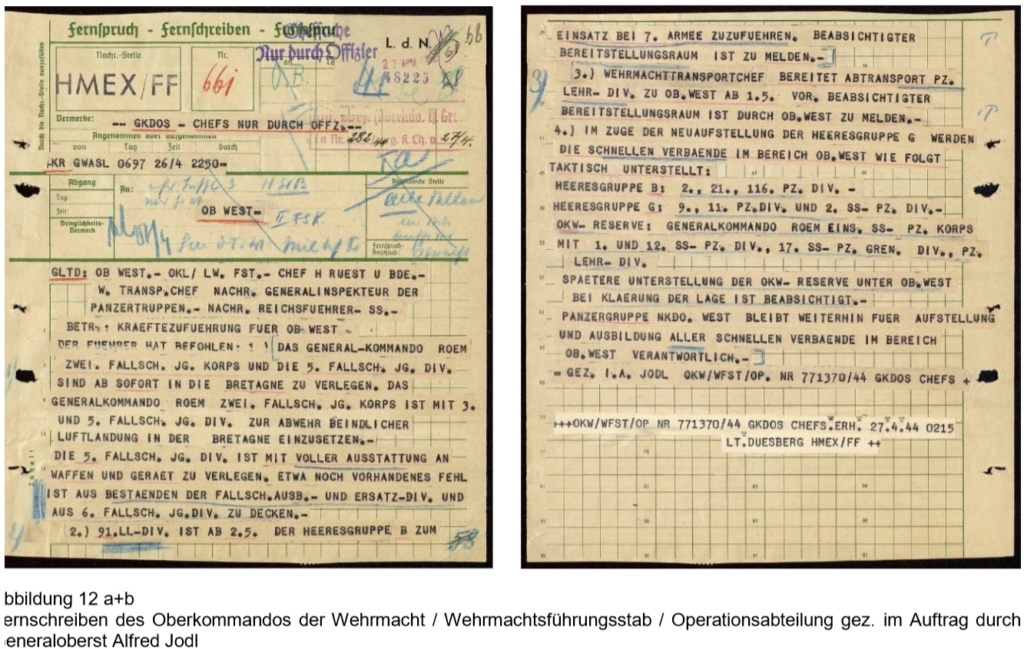 Fernspruch - Fernschreiben -
Nur durch Offizier
L. d. N.
66
Nachr.-Stelle
Nr.
HMEX/FF
661
48225
Vermerke:
-- GKDOS - CHEFS NUR DURCH OFFZ.--
Angenommen oder aufgenommen
von Tag Zeit durch
KR GWASL 0697 26/4 2250=
Abgang
Tag:
Zeit:
Dringlichkeits-
Vermerk
An:
OB WEST=
Fernspruch-
GLTD: OB WEST.- OKL/ LW. FST.- CHEF H RUEST U BDE.-
W. TRANSP.CHEF NACHR. GENERALINSPEKTEUR DER
PANZERTRUPPEN.- NACHR. REICHSFUEHRER- SS.-
BETR.: KRAEFTEZUFUEHRUNG FUER OB WEST -
DER FUEHRER HAT BEFOHLEN: DAS GENERAL-KOMMANDO ROEM
ZWEI. FALLSCH. JG. KORPS UND DIE 5. FALLSCH. JG. DIV.
SIND AB SOFORT IN DIE BRETAGNE ZU VERLEGEN. DAS
GENERALKOMMANDO ROEM ZWEI. FALLSCH. JG. KORPS IST MIT 3.
UND 5. FALLSCH. JG. DIV. ZUR ABWEHR BEINDLICHER
LUFTLANDUNG IN DER BRETAGNE EINZUSETZEN.-
DIE 5. FALLSCH. JG. DIV. IST MIT VOLLER AUSSTATTUNG AN
WAFFEN UND GERAET ZU VERLEGEN. ETWA NOCH VORHANDENES FEHL
IST AUS BESTAENDEN DER FALLSCH.AUSB.- UND ERSATZ-DIV. UND
AUS 6. FALLSCH. JG.DIV. ZU DECKEN.-
2.) 91.LL-DIV. IST AB 2.5. DER HEERESGRUPPE B ZUM
EINSATZ BEI 7. ARMEE ZUZUFUEHREN. BEABSICHTIGTER
BEREITSTELLUNGSRAUM IST ZU MELDEN.-
3.) WEHRMACHTTRANSPORTCHEF BEREITET ABTRANSPORT PZ.
LEHR- DIV. ZU OB.WEST AB 1.5. VOR. BEABSICHTIGTER
BEREITSTELLUNGSRAUM IST DURCH OB.WEST ZU MELDEN.-
4.) IM ZUGE DER NEUAUFSTELLUNG DER HEERESGRUPPE G WERDEN
DIE SCHNELLEN VERBAENDE IM BEREICH OB.WEST WIE FOLGT
TAKTISCH UNTERSTELLT:
HEERESGRUPPE B: 2., 21., 116. PZ. DIV. -
HEERESGRUPPE G: 9., 11. PZ.DIV. UND 2. SS- PZ. DIV.-
OKW- RESERVE: GENERALKOMMANDO ROEM EINS. SS- PZ. KORPS
MIT 1. UND 12. SS- PZ. DIV., 17. SS- PZ. GREN. DIV., PZ.
LEHR- DIV.
SPAETERE UNTERSTELLUNG DER OKW- RESERVE UNTER OB.WEST
BEI KLAERUNG DER LAGE IST BEABSICHTIGT.-
PANZERGRUPPE NKDO. WEST BLEIBT WEITERHIN FUER AUFSTELLUNG
UND AUSBILDUNG ALLER SCHNELLEN VERBAENDE IM BEREICH
OB.WEST VERANTWORTLICH.-
= GEZ. I.A. JODL OKW/WFST/OP. NR 771370/44 GKDOS CHEFS +
+++OKW/WFST/OP NR 771370/44 GKDOS CHEFS.ERH. 27.4.44 0215
LT.DUESBERG HMEX/FF ++
bbildung 12 a+b
ernschreiben des Oberkommandos der Wehrmacht / Wehrmachtsführungsstab / Operationsabteilung gez. im Auftrag durch
eneraloberst Alfred Jodl